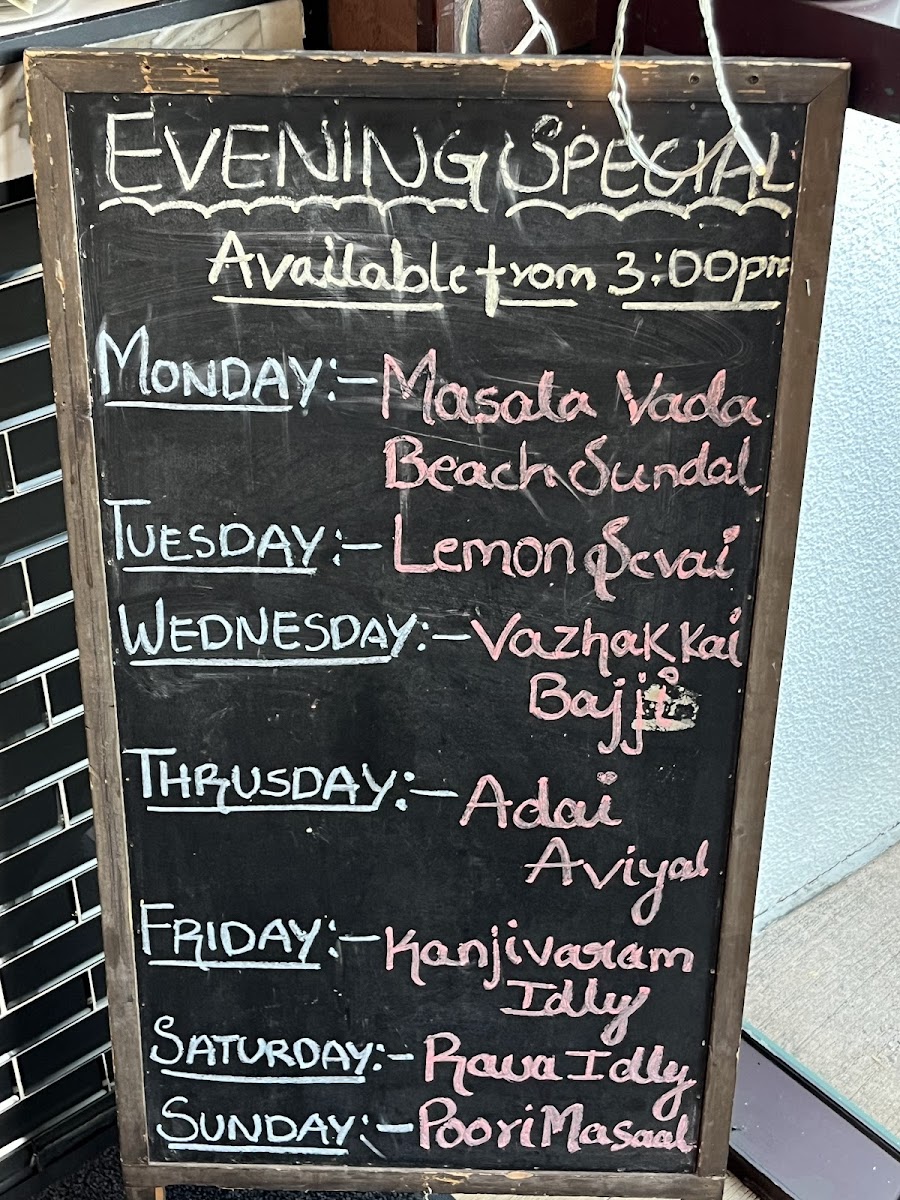 EVENING SPECIAL
Available from 3:00pm
MONDAY:- Masala Vada
Beach Sundal
TUESDAY:- Lemon Sevai
WEDNESDAY:- Vazhakkai
Bajji
THRUSDAY:- Adai
Aviyal
FRIDAY:- Kanjivaram
Idly
SATURDAY:- Rava Idly
SUNDAY:- Poori Masaal